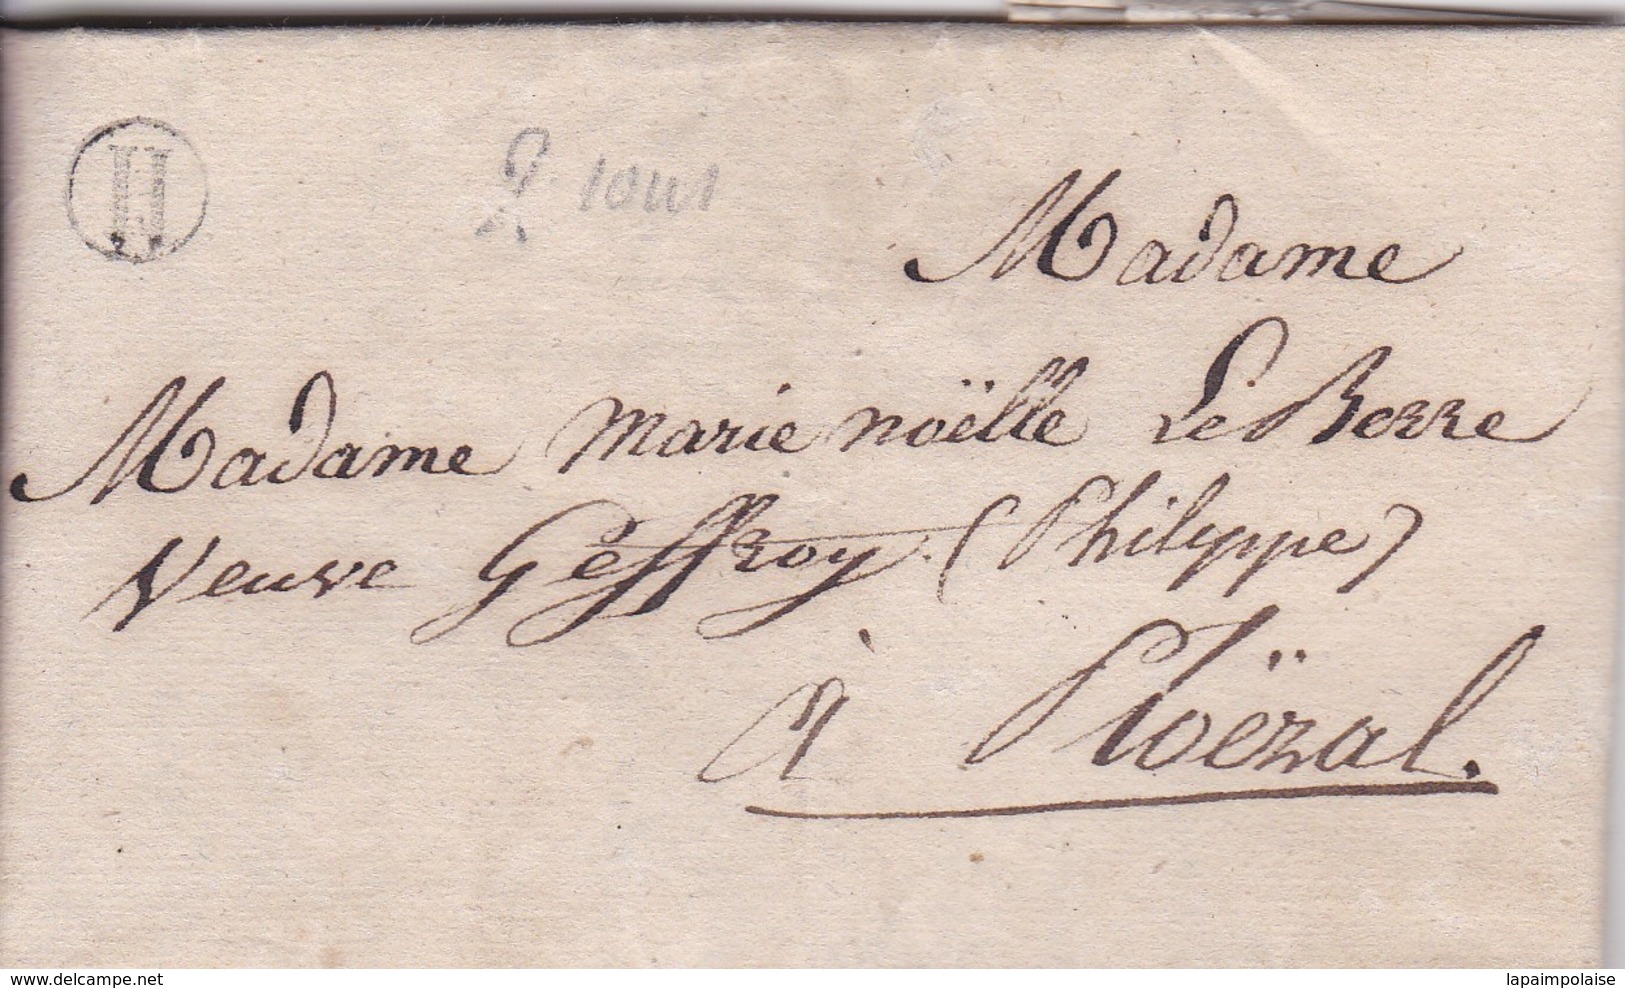 Madame
Madame marie noëlle Le Berre
Veuve Geffroy (Philippe)
à Ploëzal.
www.delcampe.net
lapaimpolaise